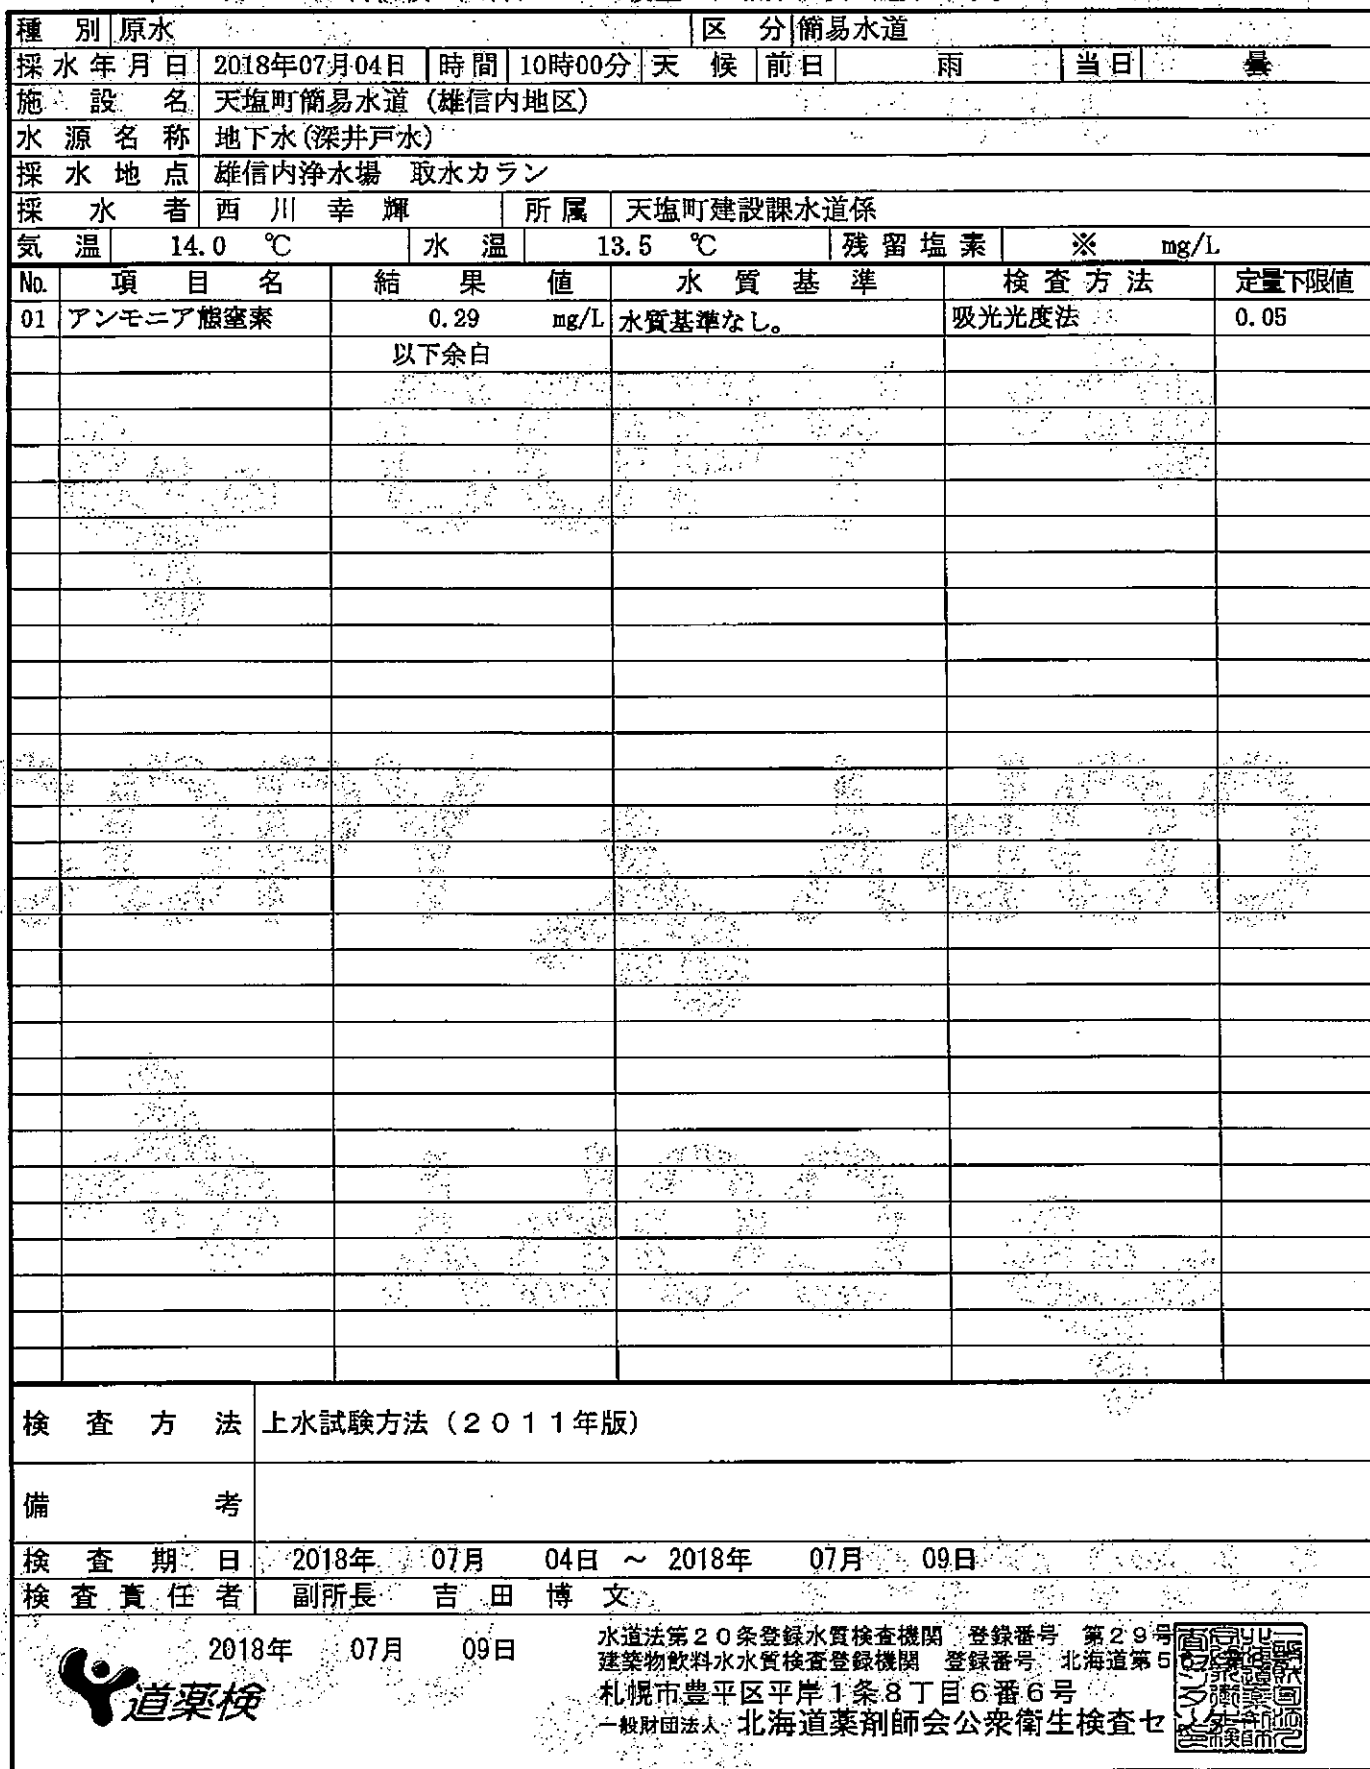 種 別 原水 区 分 簡易水道
採水年月日 2018年07月04日 時間 10時00分 天 候 前日 雨 当日 曇
施 設 名 天塩町簡易水道 (雄信内地区)
水 源 名 称 地下水(深井戸水)
採 水 地 点 雄信内浄水場 取水カラン
採 水 者 西 川 幸 輝 所属 天塩町建設課水道係
気 温 14.0 ℃ 水 温 13.5 ℃ 残留塩素 ※ mg/L
No. 項 目 名 結 果 値 水 質 基 準 検 査 方 法 定量下限値
01 アンモニア態窒素 0.29 mg/L 水質基準なし。 吸光光度法 0.05
以下余白
COPY
検 査 方 法 上水試験方法（2011年版）
備 考
検 査 期 日 2018年 07月 04日 ～ 2018年 07月 09日
検査責任者 副所長 吉 田 博 文
2018年 07月 09日
水道法第20条登録水質検査機関 登録番号 第29号
建築物飲料水水質検査登録機関 登録番号 北海道第5
札幌市豊平区平岸1条8丁目6番6号
一般財団法人 北海道薬剤師会公衆衛生検査セ
道薬検